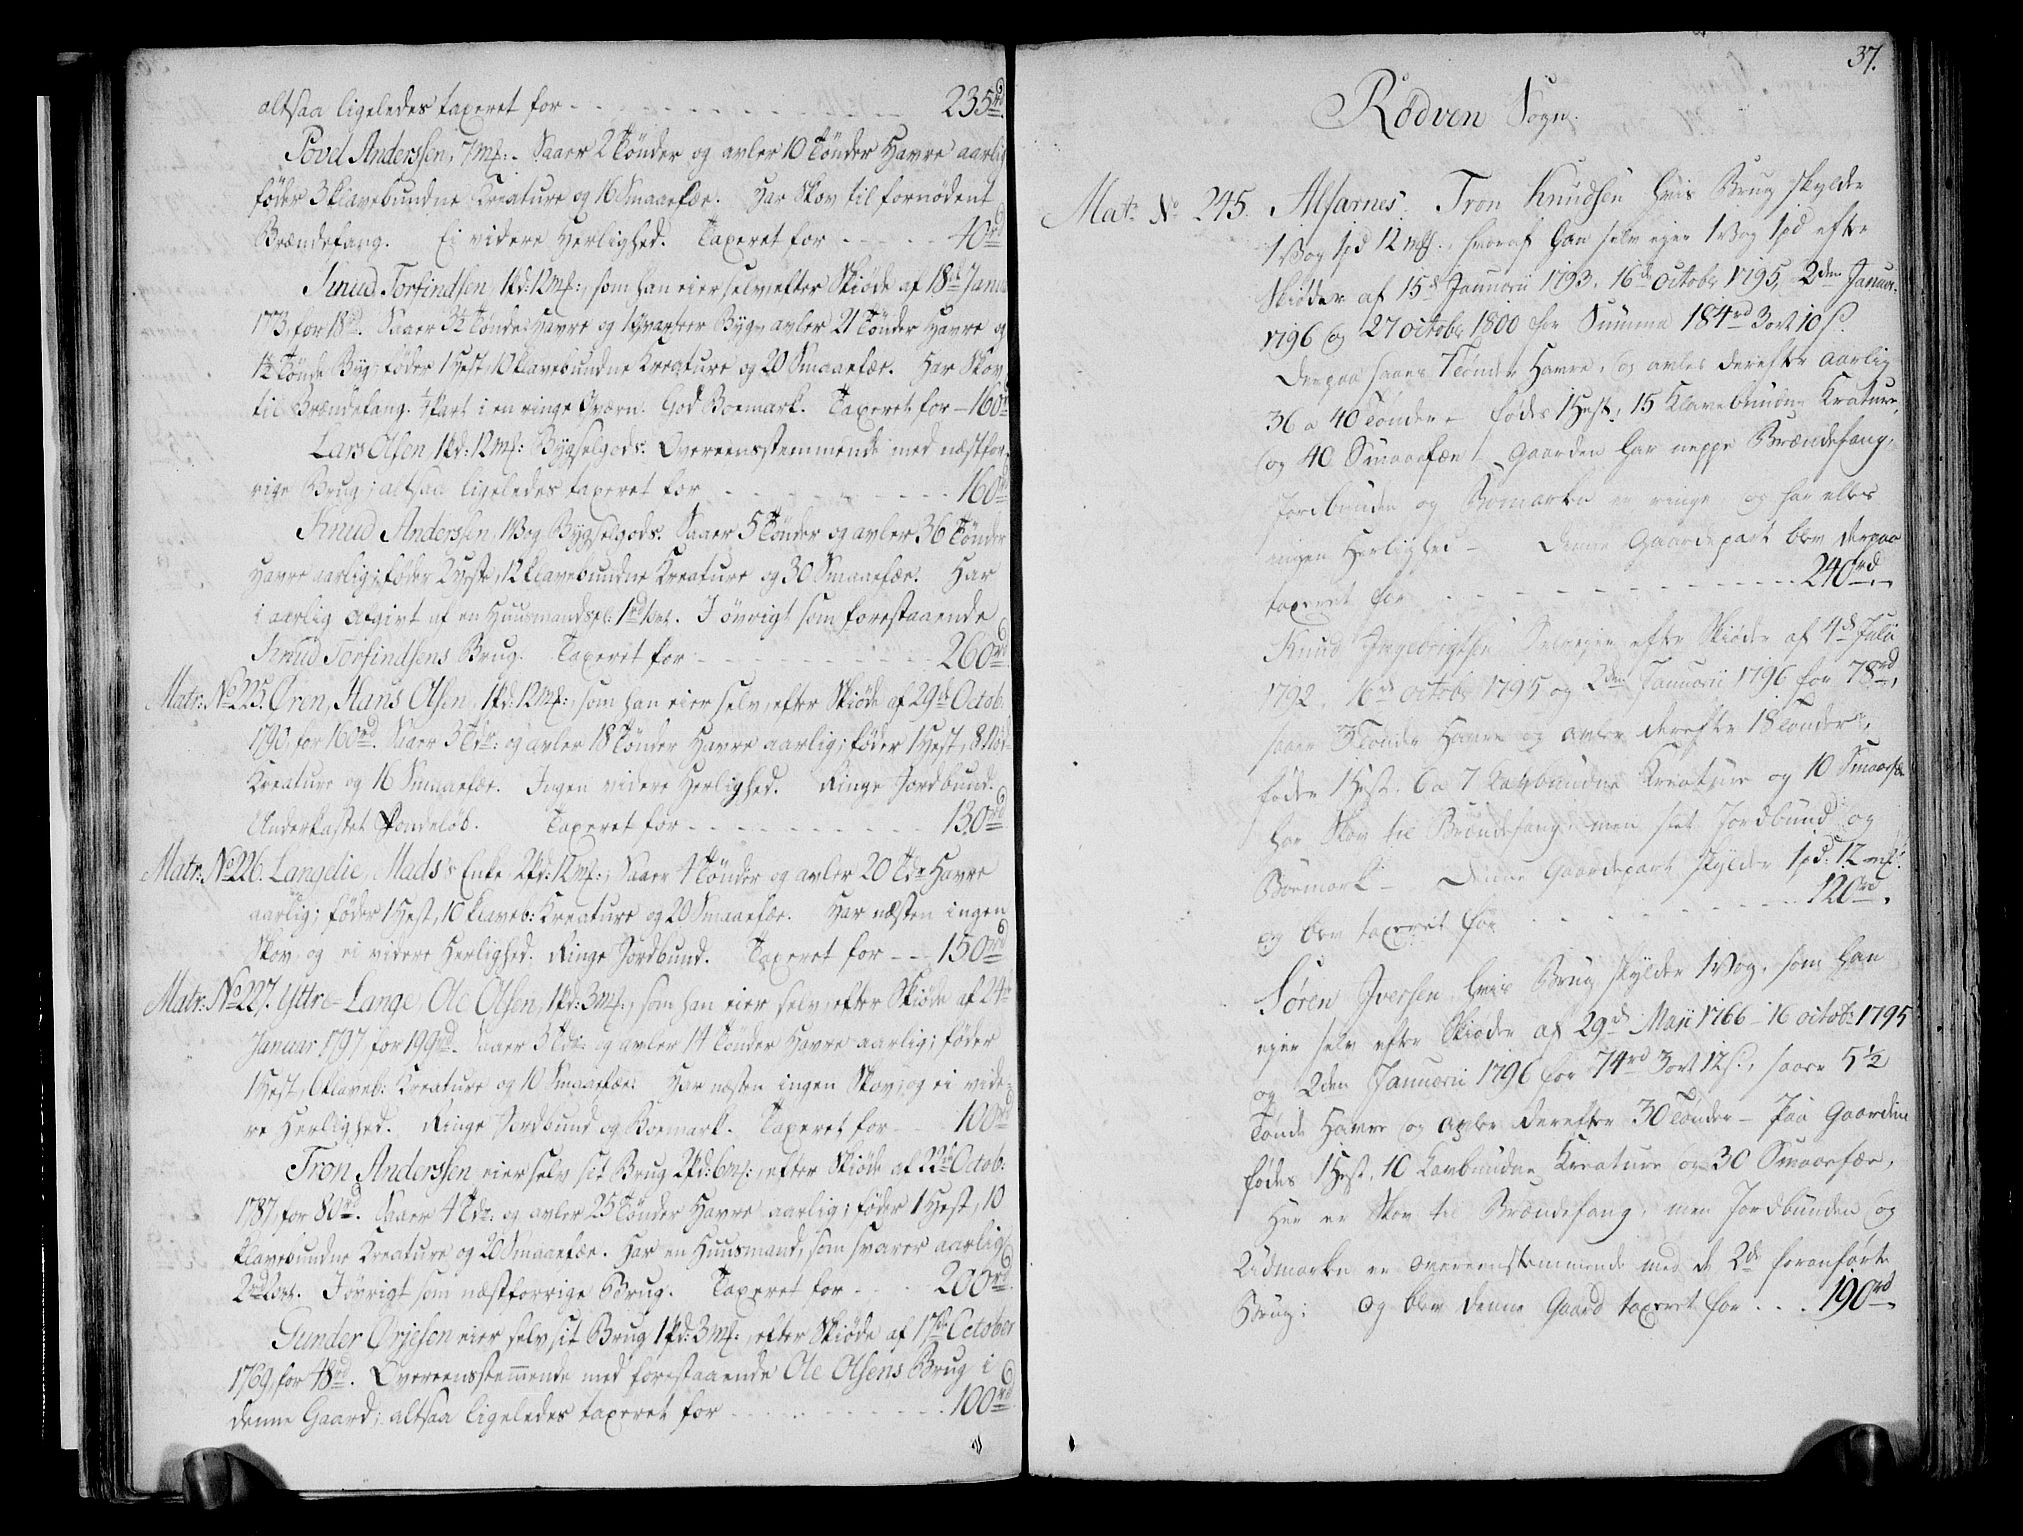 altsaa ligeledes taxeret for - - - - - - - - - - 235rd
Povel Anderssen, 7mk:. Saaer 2 Tønder og avler 10 Tønder Havre aarlig
føder 3 klavebundne Kreature og 16 Smaaefæe. Har Skov til fornødent
Brændefang. Ei videre Herlighed. Taxeret for - - - - 40rd
Knud Torfindsen, 1pd: 12mk:, som han eier selv efter Skiøde af 18d Janu
173, for 18rd. Saaer 3½ Tønde Havre og 1 Qvarteer Byg, avler 21 Tønder Havre og
1½ Tønde Byg; føder 1 Hest, 10 klavebundne Kreature og 20 Smaaefæe. Har Skov
til Brændefang. ¼ Part i en ringe Qværn. God Boemark. Taxeret for - 160rd
Lars Olsen 1pd: 12mk: Bygselgods. Overeensstemmende med næstfor-
rige Brug; altsaa ligeledes taxeret for - - - - - - 160rd
Knud Anderssen, 1 Vog Bygselgods. Saaer 5 Tønder og avler 36 Tønder
Havre aarlig; føder 2 Heste, 12 klavebundne Kreature og 30 Smaaefæe. Har
i aarlig Afgivt af en Huusmandspl: 1rd 1ort. I øvrigt som forestaaende
Knud Torfindsens Brug. Taxeret for - - - - - - - 260rd
Matr: No 225. Øren, Hans Olsen, 1pd: 12mk:, som han eier selv, efter Skiøde af 29de Octob:
1790, for 160rd. Saaer 3 Tdr: og avler 18 Tønder Havre aarlig; føder 1 Hest, 8 Nød-
Kreature og 16 Smaaefæe. Ingen videre Herlighed. Ringe Jordbund.
Underkastet Sondeløb. Taxeret for - - - - - - - 130rd
Matr: No 226. Langdie, Mads's Enke, 2pd: 12mk:, Saaer 4 Tønder og avler 20 Tdr Havre
aarlig; føder 1 Hest, 10 klaveb: Kreature og 20 Smaaefæe. Har næsten ingen
Skov, og ei videre Herlighed. Ringe Jordbund. Taxeret for - - 150rd
Matr: No 227. Yttre-Lange, Ole Olsen, 1pd: 3mk:, som han eier selv, efter Skiøde af 24de
Januar 1797 for 199rd. Saaer 3 Tdr: og avler 14 Tønder Havre aarlig; føder
1 Hest, 6 klaveb: Kreature og 10 Smaaefæe. Har næsten ingen Skov, og ei vide-
re Herlighed. Ringe Jordbund og Boemark. Taxeret for - - 100rd
Tron Anderssen eier selv sit Brug 2pd: 6mk:, efter Skiøde af 22de Octob:
1787, for 80rd. Saaer 4 Tdr: og avler 25 Tønder Havre aarlig; føder 1 Hest, 10
klavebundne Kreature og 20 Smaaefæe. Har en Huusmand, som svarer aarlig
2rd 2ort. I øvrigt som næstforrige Brug. Taxeret for - - - 200rd
Gunder Ørjesen eier selv sit Brug 1pd: 3mk:, efter Skiøde af 17de October
1769, for 48rd. Overeensstemmende med forestaaende Ole Olsens Brug i
denne Gaard; altsaa ligeledes taxeret for - - - - - - 100rd
37.
Rødven Sogn.
Matr No 245. Alfarnes. Tron Knudsen hvis Brug skylder
1 Vog 1pd 12 mk., hvoraf han selv ejer 1 Vog 1pd efter
Skiøder af 15d Januarii 1793, 16de Octobr 1795, 2den Januar:
1796 og 27 Octobr 1800 for Summa 184rd 3ort 10s.
Derpaa saaes 7 Tønder Havre, og avles derefter aarlig
36 a 40 Tønder - fødes 1 Hest, 15 Klavebundne Kreature,
og 40 Smaaefæe. Gaarden har neppe Brændefang,
Jordbunden og Bomarken er ringe, og har ellers
ingen Herlighed - Denne Gaardepart blev derpaa
taxeret for - - - - - - - - 240rd.
Knud Ingebrigtsen Selvejer efter Skiøder af 4d Julii
1792, 16de Octobr 1795 og 2den Januarii 1796 for 78rd,
saaer 3 Tønder Havre og avler derefter 18 Tønder,
føder 1 Hest, 6 a 7 Klavbundne Kreature og 10 Smaaefæe
har Skov til Brændefang, men slet Jordbund og
Boemark - Denne Gaardepart skylder 1pd: 12 mk.
og blev taxeret for - - - - - - 120rd.
Søren Iversen, hvis Brug skylder 1 Vog, som han
ejer selv efter Skiøder af 29d Maji 1766 - 16 Octob: 1795
og 2den Januarii 1796 for 74rd 3ort 12s., saaer 5½
Tønde Havre og avler derefter 30 Tønder - Paa Gaarden
fødes 1 Hest, 10 Klavbundne Kreature og 30 Smaaefæe,
Her er Skov til Brændefang, men Jordbunden og
Udmarken er overeenstemmende med de 2de foranførte
Brug; Og blev denne Gaard taxeret for . . . 190rd